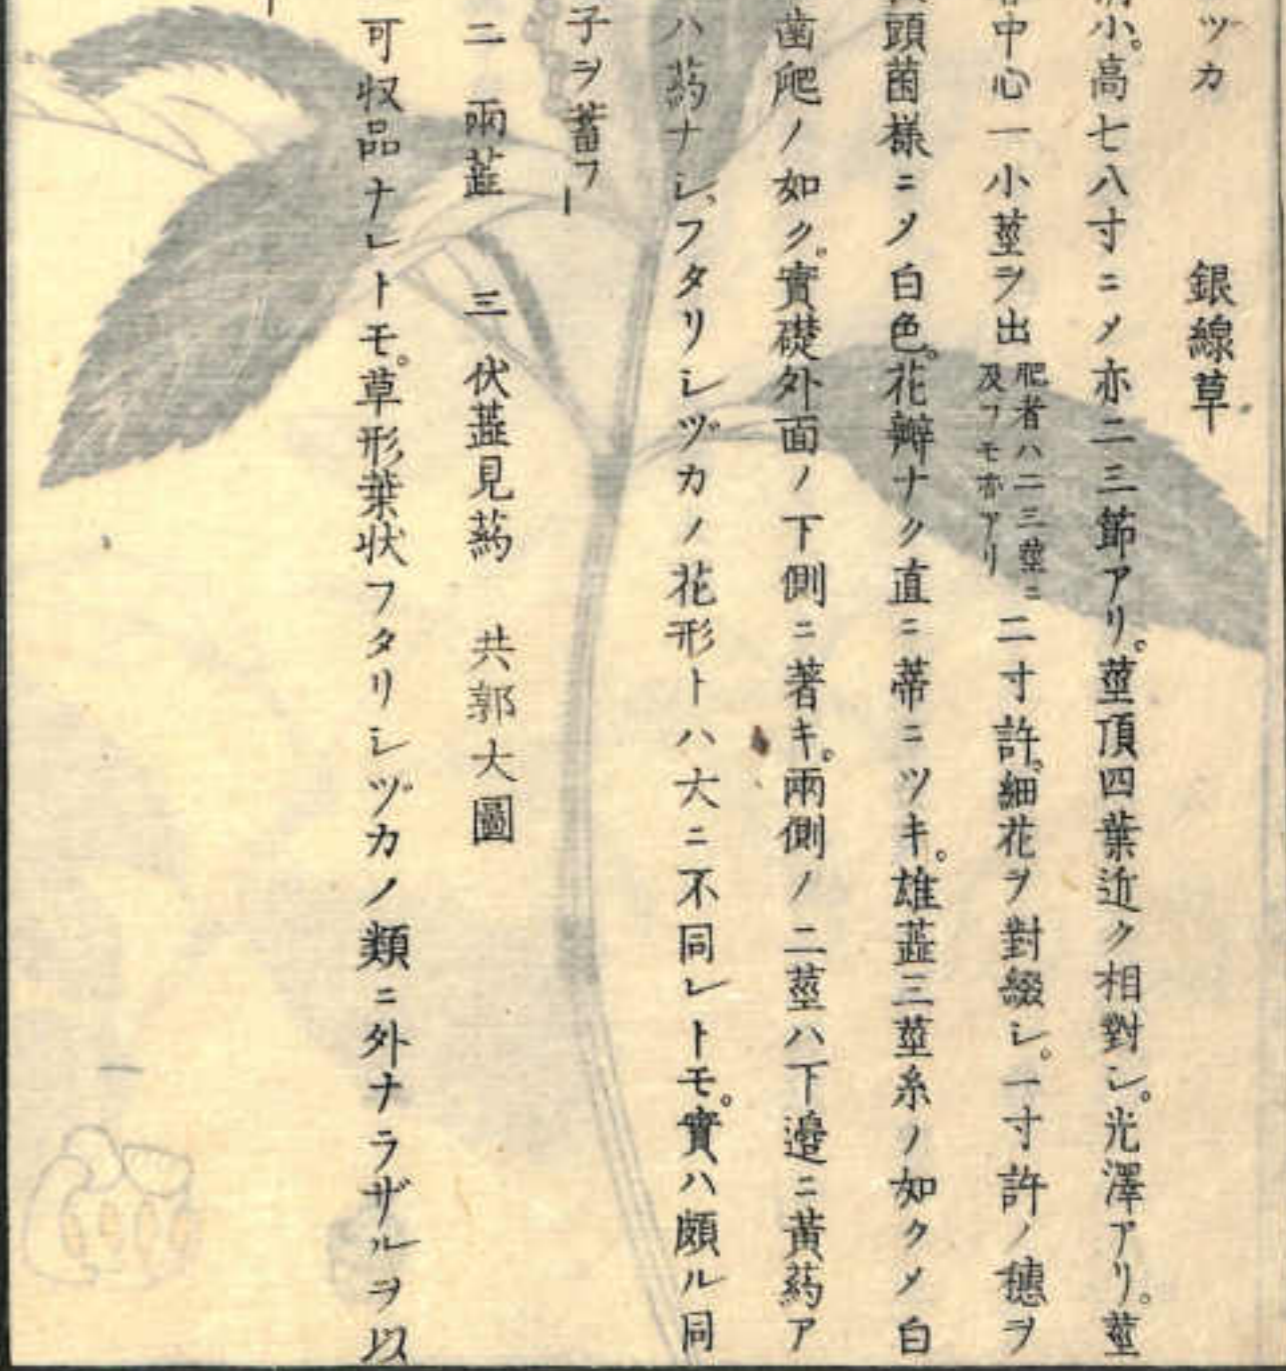 ツカ　銀線草
小。高七八寸ニメ亦二三節アリ。莖頂四葉近ク相對シ。光澤アリ。莖
中心一小莖ヲ出肥者ハ二三莖ニ及フモ亦アリ二寸許。細花ヲ對綴シ。一寸許ノ穗ヲ
頭菌様ニメ白色。花瓣ナク直ニ蒂ニツキ。雄蘂三莖糸ノ如クメ白
齒爬ノ如ク。實礎外面ノ下側ニ著キ。兩側ノ二莖ハ下邊ニ黃葯ア
ハ葯ナシ、フタリシヅカノ花形トハ大ニ不同レトモ。實ハ頗ル同
子ヲ蓄フ
二　兩蘂　三　伏蘂見葯　共郭大圖
可収品ナレトモ。草形葉状フタリシヅカノ類ニ外ナラザルヲ以
一